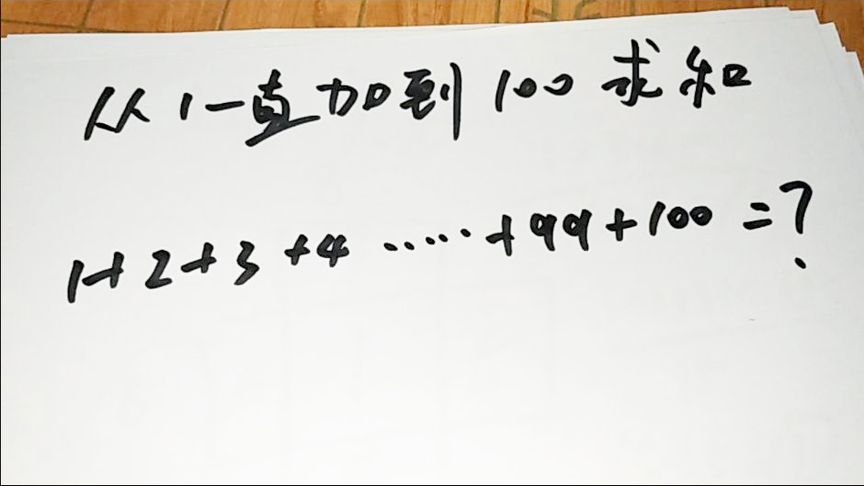 从1一直加到100求和
1+2+3+4……+99+100=?